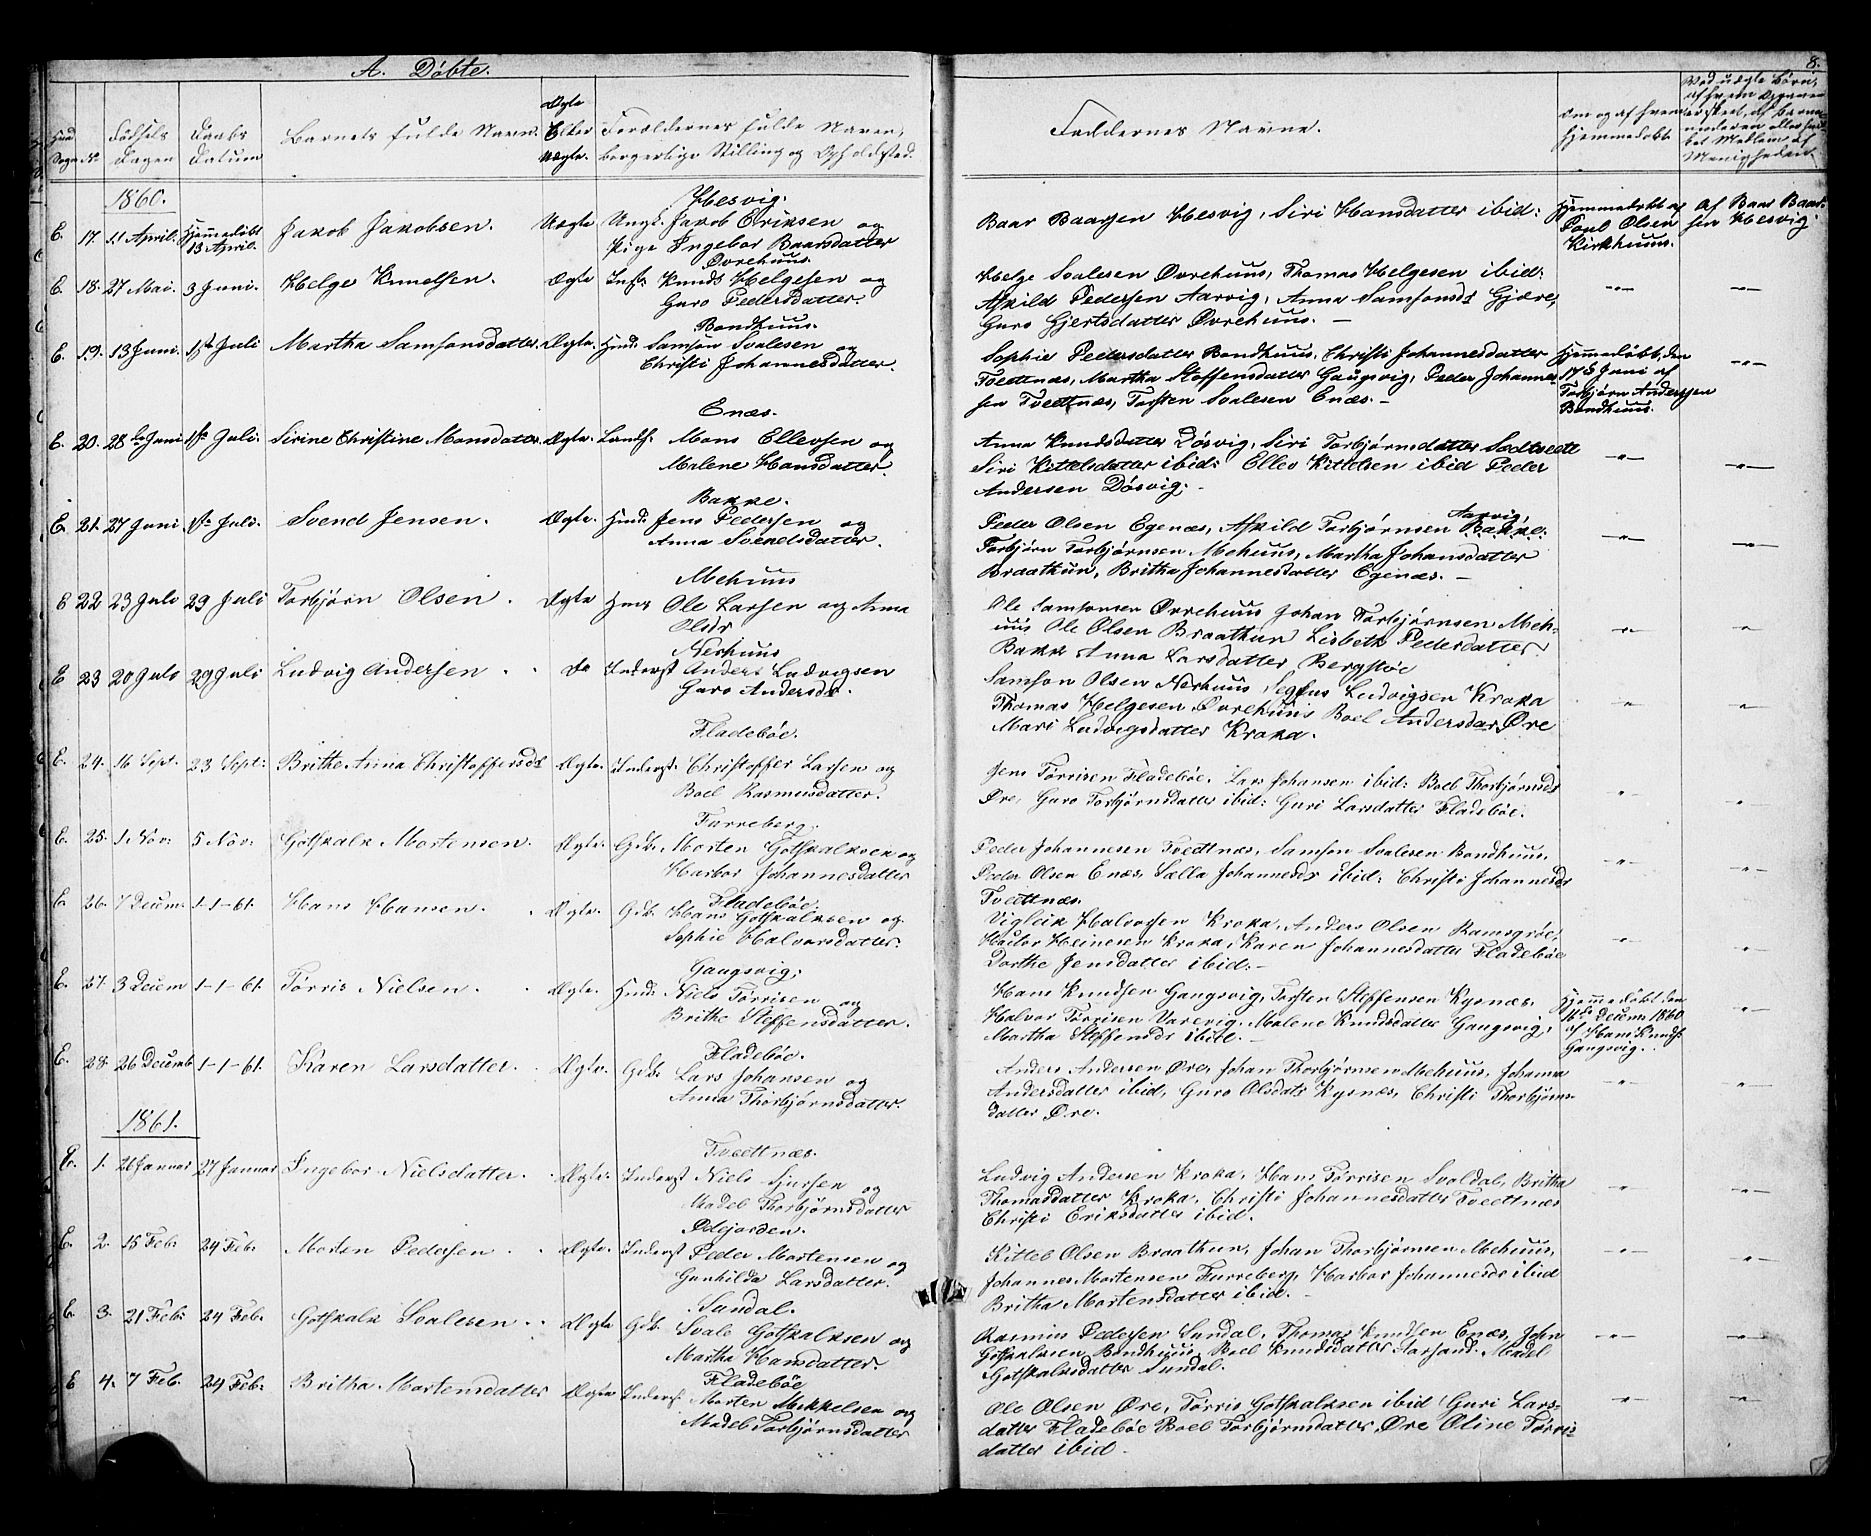 A. Døbte.
8.
No.
Fødsels Dagen
Daabs Datum
Barnets fulde Navn.
Ægte Eller Uægte.
Forældernes fulde Navne, borgerlige Stilling og Opholdsted.
Faddernes Navne.
Om og af hvem hjemmedøbt
1860.
E. 17. 11 April. Hjemmedøbt 13 April. Jakob Jakobsen. Uægte Ungk. Jakob Eriksen og
Pige Ingebor Baarsdatter
Hesvig.
Baar Baarsen Hesvig, Siri Hansdatter ibid:
Hjemmedøbt af
Poul Olsen
Kirkhuus.
af Baar Baar-
sen Hesvig
E. 18. 27 Mai. 3 Juni. Helge Knudsen. Ægte Inst. Knud Helgesen og
Guro Pedersdatter.
Øvrehuus.
Helge Svalesen Øvrehuus, Thomas Helgesen ibid:
Askild Pedersen Aarvig, Anna Samsonsd. Gjære,
Guro Gjertsdatter Øvrehuus. —
E. 19. 13 Juni. 1ste Juli Martha Samsonsdatter. Ægte. Huusm. Samson Svalesen og
Christi Johannesdatter.
Bondhuus.
Sophie Pedersdatter Bondhuus, Christi Johannesdatter
Tveitnæs, Martha Steffensdatter Gaugsvig, Peder Johannes-
sen Tveitnæs, Torsten Svalesen Enæs. —
Hjemmedøbt, den
17 Juni af
Torbjørn Andersen
Bondhuus.
E. 20. 28 Juni 1ste Juli. Sirine Christine Monsdatter. Ægte. Mons Ellevsen og
Malene Hansdatter.
Enæs.
Anna Knudsdatter Døsvig, Siri Torbjørnsdatter
Siri Kittelsdatter ibid: Ellev Kittelsen ibid Peder
Andersen Døsvig. —
E. 21. 27 Juni 1ste Juli. Svend Jensen. Ægte. Huusm. Jens Pedersen og
Anna Svendsdatter.
Bakke.
Peder Olsen Egenæs, Askild Torbjørnsen Aarvig Bakke.
Torbjørn Torbjørnsen Mehuus, Martha Johansdatter
Braathun, Britha Johannesdatter Egenæs. —
E 22 23 Juli 29 Juli Torbjørn Olsen. Ægte Ole Larsen og Anna
Olsdr
Mehuus
Ole Samsonsen Øvrehuus Johan Torbjørnsen Meh-
uus Ole Olsen Braathun Lisbeth Pedersdatter
Bakk Anna Larsdatter Bergstøe
E 23 20 Juli 29 Juli Ludvig Andersen. Do Inderst Anders Ludvigsen
Guro Andersdr.
Nerhuus
Samson Olsen Nerhuus, Ludvigsen Kroka
Thomas Helgesen Øvrehuus Boel Andersdatr. Øre
Mari Ludvigsdatter Kroka.
E. 24. 16 Sept. 23 Sept: Brithe Anna Christoffersdr Ægte. Inderst. Christoffer Larsen og
Boel Rasmusdatter.
Fladebøe.
Jens Tørrisen Fladebøe, Lars Johansen ibid: Boel Thorbjørnsdr
Øre, Guro Torbjørnsdatter ibid: Guri Larsdatter Fladebøe.
E. 25. 1 Nov: 5 Nov: Gotskalk Mortensen. Ægte. Gdb. Morten Gotskalksen og
Harbor Johannesdatter
Furreberg.
Peder Johannesen Tveitnæs, Samson Svalesen Bondhuus,
Peder Olsen Enæs, Sælla Johannesdr ibid: Christi Johannesdr
Tveitnæs.
E. 26. 7 Decem. 1-1-61. Hans Hansen. Ægte. Gdb. Hans Gotskalksen og
Sophie Halvorsdatter.
Fladebøe.
Vigleik Halvorsen Kroka, Anders Olsen Ramsgrøe,
Heinesen Kroka, Karen Johannesdatter Fladebøe
Dorthe Jensdatter ibid: —
E. 27. 3 Decem 1-1-61. Tørris Nielsen. Ægte. Huusm. Niels Tørrisen og
Brithe Steffensdatter.
Gaugsvig.
Hans Knudsen Gaugsvig, Torsten Steffensen Kysnæs,
Halvor Tørrisen Varevig, Malene Knudsdatter Gaugsvig,
Martha Steffensdr ibid. —
Hjemmedøbt den
Decem 1860
af Hans Knuds.
Gaugsvig.
E. 28. 26 Decemb 1-1-61. Karen Larsdatter. Ægte. Gdb. Lars Johansen og
Anna Thorbjørnsdatter.
Fladebøe.
Anders Andersen Øre, Johan Thorbjørnsen Mehuus, Johanna
Andersdatter ibid, Guro Olsdatr Kysnæs, Christi Thorbjørns-
datter Øre.
1861.
E. 1. 26 Januar 27 Januar Ingebor Nielsdatter. Ægte. Inderst Niels Sjursen og
Madel Thorbjørnsdatter
Tveitnæs.
Ludvig Andersen Kroka, Hans Tørrisen Svaldal, Britha
Thomasdatter Kroka, Christi Johannesdatter Tveitnæs
Christi Eriksdatter ibid.
E. 2. 15 Feb: 24 Feb: Morten Pedersen. Ægte. Inderst Peder Mortensen og
Gunhilda Larsdatter.
Ødejorden.
Kittel Olsen Braathun, Johan Thorbjørnsen Mehuus,
Johannes Mortensen Furreberg, Harbor Johannesdr ibid
Britha Mortensdatter ibid. —
E. 3. 21 Feb: 24 Feb. Gotskalk Svalesen. Ægte Gdb. Svale Gotskalksen og
Martha Hansdatter.
Sundal.
Rasmus Pedersen Sundal, Thomas Knudsen Enæs, John
Gotskalksen Bondhuus, Boel Knudsdatter Aarsand. Madel
Gotskalksdatter Sundal.
E 4. 7 Feb. 24 Feb: Britha Mortensdatter Ægte Inderst. Morten Mikkelsen og
Madel Torbjørnsdatter
Fladebøe
Ole Olsen Øre, Tørris Gotskalksen ibid Guri Lars-
datter Fladebøe Boel Torbjørnsdatter Øre Oline Tørris-
datter ibid.